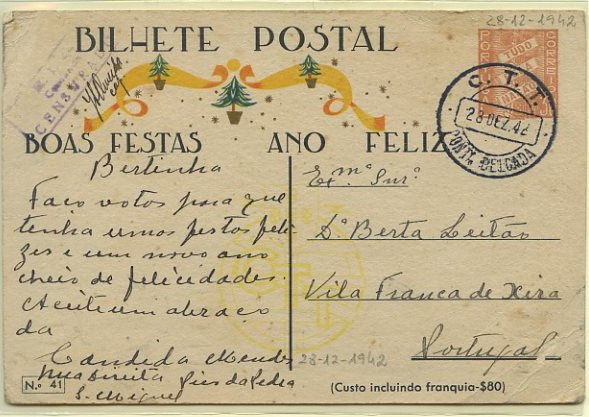 28-12-1942
BILHETE POSTAL
CENSURA
PORTUGAL
CORREIO
TUDO
PELA
NAÇÃO
C. T. T.
28 DEZ. 42
PONTA DELGADA
BOAS FESTAS ANO FELIZ
Bertinha
Faco votos para que
tenha umas festas feli
zes e um novo ano
cheio de felicidades.
Aceite um abraço
da
Candida Mendes
Rua Direita Pico da Pedra
S. Miguel
Exmª Snrª
Dª Berta Leitão
Vila Franca de Xira
Portugal
28-12-1942
N.º 41
(Custo incluindo franquia-$80)